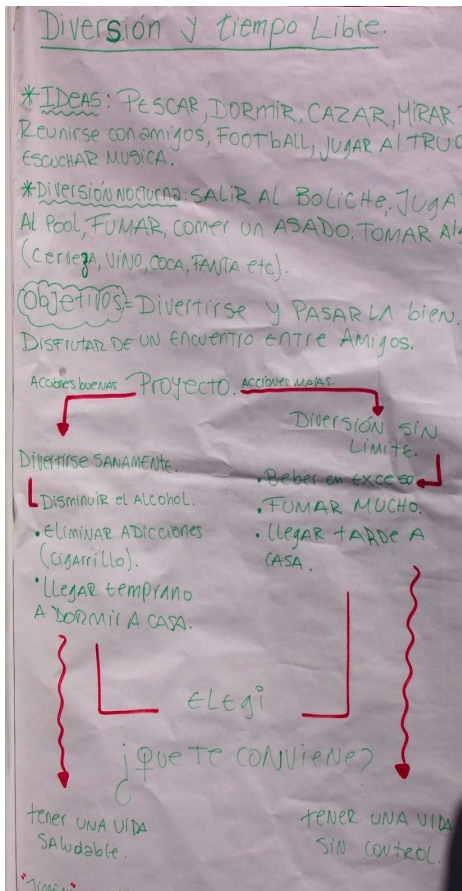 Diversión y tiempo Libre.
* IDEAS: PESCAR, DORMIR, CAZAR, MIRAR
Reunirse con amigos, FootBALL, JUGAR Al TRUC
ESCUCHAR MUSICA.
* Diversión Nocturna: SALIR AL BOLICHE, JUGA
Al Pool, FUMAR, comer un ASADO. TOMAR Al
(Cerveza, VINO, COCA, FANTA etc).
Objetivos = Divertirse y PASAR LA bien.
DISFRUTAR DE UN ENCUENTRO ENTRE Amigos.
Acciones buenas Proyecto. Acciones Malas.
Diversión SIN
LIMITE.
Divertirse SANAMENTE.
Disminuir el Alcohol.
• Eliminar ADICCIONES
(Cigarrillo).
• Llegar temprano
A DORMIR A CASA.
• Beber en exceso
• FUMAR MUCHO.
• llegar tarde A
CASA.
Elegi
¿Que te conviene?
tener UNA VIDA
SAludable.
TENER UNA VIDA
SIN CONTROL.